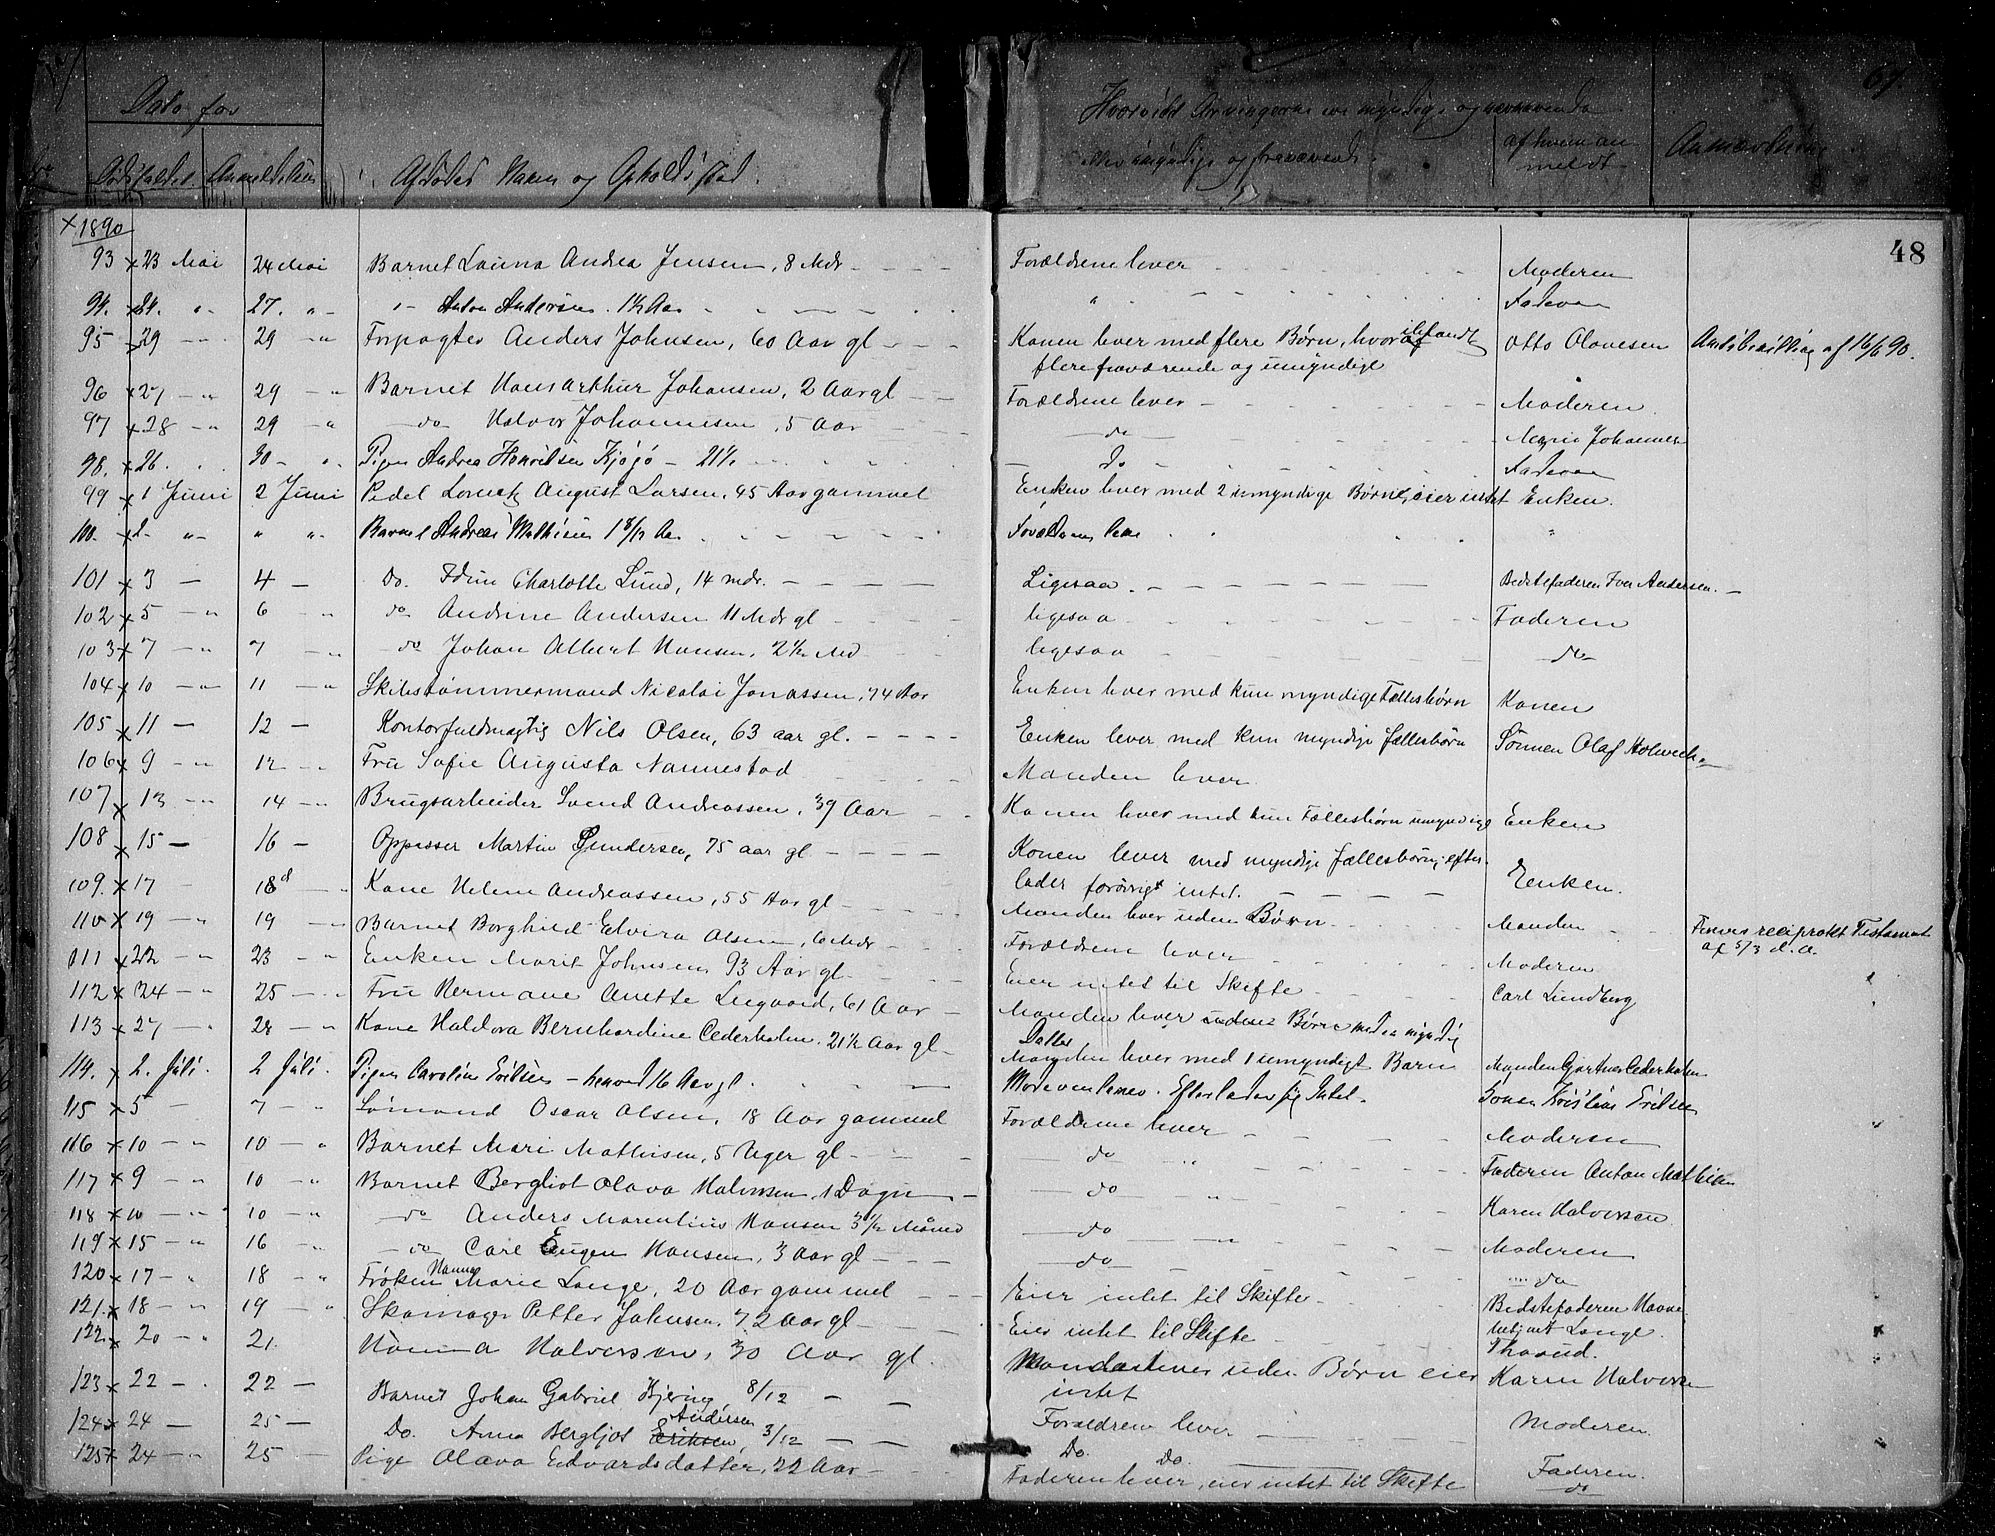 67.
Dato for
Hvorvidt Arvingerne ere myndige og nærværende
Dødsfaldet Anmeldelsen Afdødes Navn og Opholdssted. eller umyndige og fraværende. af hvem anmeldt Anmærkning
48
x 1890
93 x 23 Mai 24 Mai Barnet Launa Andrea Jensen, 8 Mdr Forældrene lever Moderen
94. x 24. 27. " Anton Andersen 1½ Aar " Faderen
95 x 29 29 " Forpagter Anders Johnsen, 60 Aar gl Konen lever med flere Børn, hvoraf iblandt Otto Olavesen Amtsbevilling af 16/6 90.
flere fraværende og umyndige
96 x 27 29 Barnet Hans Arthur Johansen, 2 Aar gl Forældrene lever Moderen
97 x 28 29 do Halvor Johannesen, 5 Aar do Marie Johannes
98. x 26. 30 Pigen Andrea Henriksen Kjøjø 21½ do Faderen
99 x 1 Juni 2 Juni Pedel Lomek August Larsen, 45 Aar gammel Enken lever med 2 umyndige Børn, eier intet Enken.
100. x 2. " " Barnet Andreas Mathisen 1 8/12 Aar Forældrene lever "
101 x 3 4 Do. Edun Charlotte Lund, 14 mdr. Ligesaa Bedstefaderen Iver Andersen
102 x 5 6 do Andrine Andersen 11 Mdr gl ligesaa Faderen
103 x 7 7 do Johan Albert Hansen, 2½ Md ligesaa do
104 x 10 11 Skibstømmermand Nicolai Jonassen, 74 Aar Enken lever med kun myndige Fællesbørn Konen
105 x 11 12 Kontorfuldmægtig Nils Olsen, 63 aar gl. Enken lever med kun myndige fællesbørn Sønnen Olaf Holweck
106 x 9 12 Fru Sofie Augusta Nannestad Manden lever
107 x 13 14 Brugsarbeider Svend Andreassen, 39 Aar Konen lever med kun Fællesbørn umyndige Enken
108 x 15 16 Oppasser Martin Gundersen, 75 aar gl Konen lever med myndige fællesbørn, efter- Enken.
lader forøvrigt intet.
109. x 17 18 Kone Helene Andreassen, 55 Aar gl Manden lever uden Børn Manden Finnes reciprokt Testament
af 5/3 d. A.
110 x 19 19 Barnet Borghild Elvira Olsen, 6 Mdr Forældrene lever Moderen
111 x 22 23 Enken Marit Johnsen 93 Aar gl. Eier intet til Skifte Carl Lundberg
112 x 24 25 Fru Hermane Anette Lugaard, 61 Aar Manden lever uden Børn med en myndig
Datter
113 x 27 28 Kone Haldora Bernhardine Cederholm, 21½ Aar gl Manden lever med 1 umyndigt Barn Manden Gartner Cederholm
114. x 2. Juli. 2 Juli. Pigen Caroline Eriksen 16 Aar gl. Moderen lever. Efterlader sig Intet. Sønen Kristian Eriksen
115 x 5 7 Sømand Oscar Olsen, 18 Aar gammel Forældrene lever Moderen
116 x 10 10 Barnet Mari Mathisen, 5 Uger gl do Faderen Anton Mathisen
117 x 9 10 Barnet Bergliot Olava Halvorsen, 1 Døgn do Karen Halvorsen
118 x 10 10 do Anders Marentius Hansen 3½ Måned do Moderen
119 x 15 16 do Carl Eugen Hansen, 3 Aar gl do do
120 x 17 18 Frøken Hanna Marie Lange, 20 Aar gammel Eier intet til Skifte Bedstefaderen Havne
betjent Lange.
121. x 18 19 Skomager Petter Johnsen, 72 Aar gl Eier intet til Skifte Thorud.
122. x 20 21. Hanna Halvorsen, 30 Aar gl. Manden lever uden Børn eier Karen Halvorsen
intet
123 x 22 22 Barnet Johan Gabriel Hjering, 8/12 Forældrene lever Moderen.
124 x 24 25 Do. Anna Bergljot Eriksen Andersen, 3/12 Do. Do. Faderen.
125 x 24 25 Pige Olava Edvardsdatter, 22 Aar Faderen lever, eier intet til Skifte do